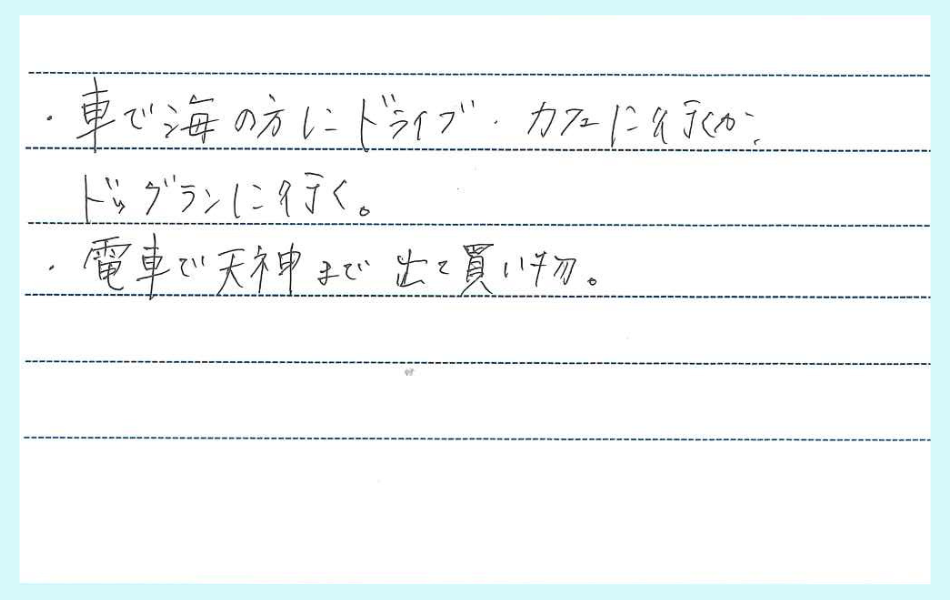 ・車で海の方にドライブ・カフェに行くか、
ドッグランに行く。
・電車で天神まで出て買い物。